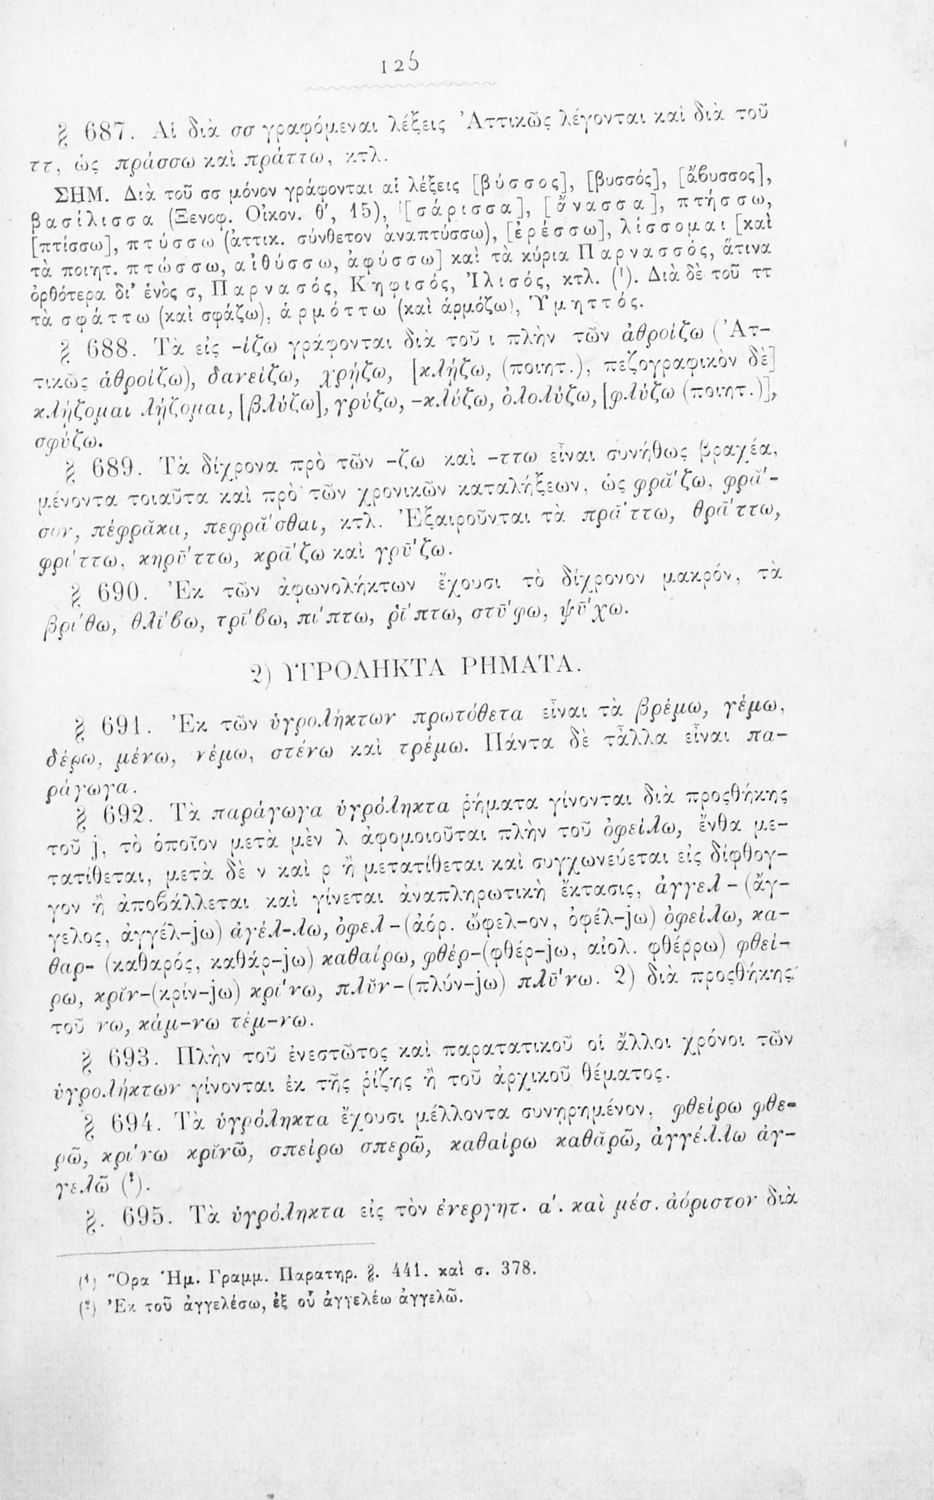 125
§ 687. Αἱ διὰ σσ γραφόμεναι λέξεις Ἀττικῶς λέγονται καὶ διὰ τοῦ
ττ, ὡς πράσσω καὶ πράττω, κτλ.
ΣΗΜ. Διὰ τοῦ σσ μόνον γράφονται αἱ λέξεις [βύσσος], [βυσσός], [ἄβυσσος],
βασίλισσα (Ξενοφ. Οἰκον. θ', 15), [σάρισσα], [ἄνασσα], πτήσσω,
[πτίσσω], πτύσσω (ἀττικ. σύνθετον ἀναπτύσσω), [ἐρέσσω], λίσσομαι [καὶ
τὰ ποιητ. πτώσσω, αἰθύσσω, ἀφύσσω] καὶ τὰ κύρια Παρνασσός, ἅτινα
ὀρθότερα δι' ἑνὸς σ, Παρνασός, Κηφισός, Ἰλισός, κτλ. (¹). Διὰ δὲ τοῦ ττ
τὰ σφάττω (καὶ σφάζω), ἁρμόττω (καὶ ἁρμόζω), Ὑμηττός.
§ 688. Τὰ εἰς -ίζω γράφονται διὰ τοῦ ι πλὴν τῶν ἀθροίζω (Ἀτ-
τικῶς ἁθροίζω), δανείζω, χρῄζω, [κλῄζω, (ποιητ.), πεζογραφικὸν δὲ]
κλῄζομαι λῄζομαι, [βλύζω], γρύζω, -κλύζω, ὀλολύζω, [φλύζω (ποιητ.)],
σφύζω.
§ 689. Τὰ δίχρονα πρὸ τῶν -ζω καὶ -ττω εἶναι συνήθως βραχέα,
μένοντα τοιαῦτα καὶ πρὸ τῶν χρονικῶν καταλήξεων, ὡς φρᾰ́ζω, φρᾰ́-
σον, πέφρᾰκα, πεφρᾰ́σθαι, κτλ. Ἐξαιροῦνται τὰ πρᾱ́ττω, θρᾱ́ττω,
φρῑ́ττω, κηρῡ́ττω, κρᾱ́ζω καὶ γρῡ́ζω.
§ 690. Ἐκ τῶν ἀφωνολήκτων ἔχουσι τὸ δίχρονον μακρόν, τὰ
βρῑ́θω, θλῑ́βω, τρῑ́βω, πῑ́πτω, ῥῑ́πτω, στῡ́φω, ψῡ́χω.
2) ΥΓΡΟΛΗΚΤΑ ΡΗΜΑΤΑ.
§ 691. Ἐκ τῶν ὑγρολήκτων πρωτόθετα εἶναι τὰ βρέμω, γέμω,
δέρω, μένω, νέμω, στένω καὶ τρέμω. Πάντα δὲ τἆλλα εἶναι πα-
ράγωγα.
§ 692. Τὰ παράγωγα ὑγρόληκτα ῥήματα γίνονται διὰ προςθήκης
τοῦ j, τὸ ὁποῖον μετὰ μὲν λ ἀφομοιοῦται πλὴν τοῦ ὀφείλω, ἔνθα με-
τατίθεται, μετὰ δὲ ν καὶ ρ ἢ μετατίθεται καὶ συγχωνεύεται εἰς δίφθογ-
γον ἢ ἀποβάλλεται καὶ γίνεται ἀναπληρωτικὴ ἔκτασις, ἀγγελ-(ἄγ-
γελος, ἀγγέλ-jω) ἀγέλ-λω, ὀφελ-(ἀόρ. ὤφελ-ον, ὀφέλ-jω) ὀφείλω, κα-
θαρ- (καθαρός, καθάρ-jω) καθαίρω, φθέρ-(φθέρ-jω, αἰολ. φθέρρω) φθεί-
ρω, κρῐν-(κρίν-jω) κρῑ́νω, πλῠν-(πλύν-jω) πλῡ́νω. 2) διὰ προςθήκης
τοῦ νω, κάμ-νω τέμ-νω.
§ 693. Πλὴν τοῦ ἐνεστῶτος καὶ παρατατικοῦ οἱ ἄλλοι χρόνοι τῶν
ὑγρολήκτων γίνονται ἐκ τῆς ῥίζης ἢ τοῦ ἀρχικοῦ θέματος.
§ 694. Τὰ ὑγρόληκτα ἔχουσι μέλλοντα συνῃρημένον, φθείρω φθε-
ρῶ, κρῑ́νω κρῐνῶ, σπείρω σπερῶ, καθαίρω καθᾰρῶ, ἀγγέλλω ἀγ-
γελῶ (²).
§. 695. Τὰ ὑγρόληκτα εἰς τὸν ἐνεργητ. α'. καὶ μέσ. ἀόριστον διὰ
(¹) Ὅρα Ἡμ. Γραμμ. Παρατηρ. §. 441. καὶ σ. 378.
(²) Ἐκ τοῦ ἀγγελέσω, ἐξ οὗ ἀγγελέω ἀγγελῶ.